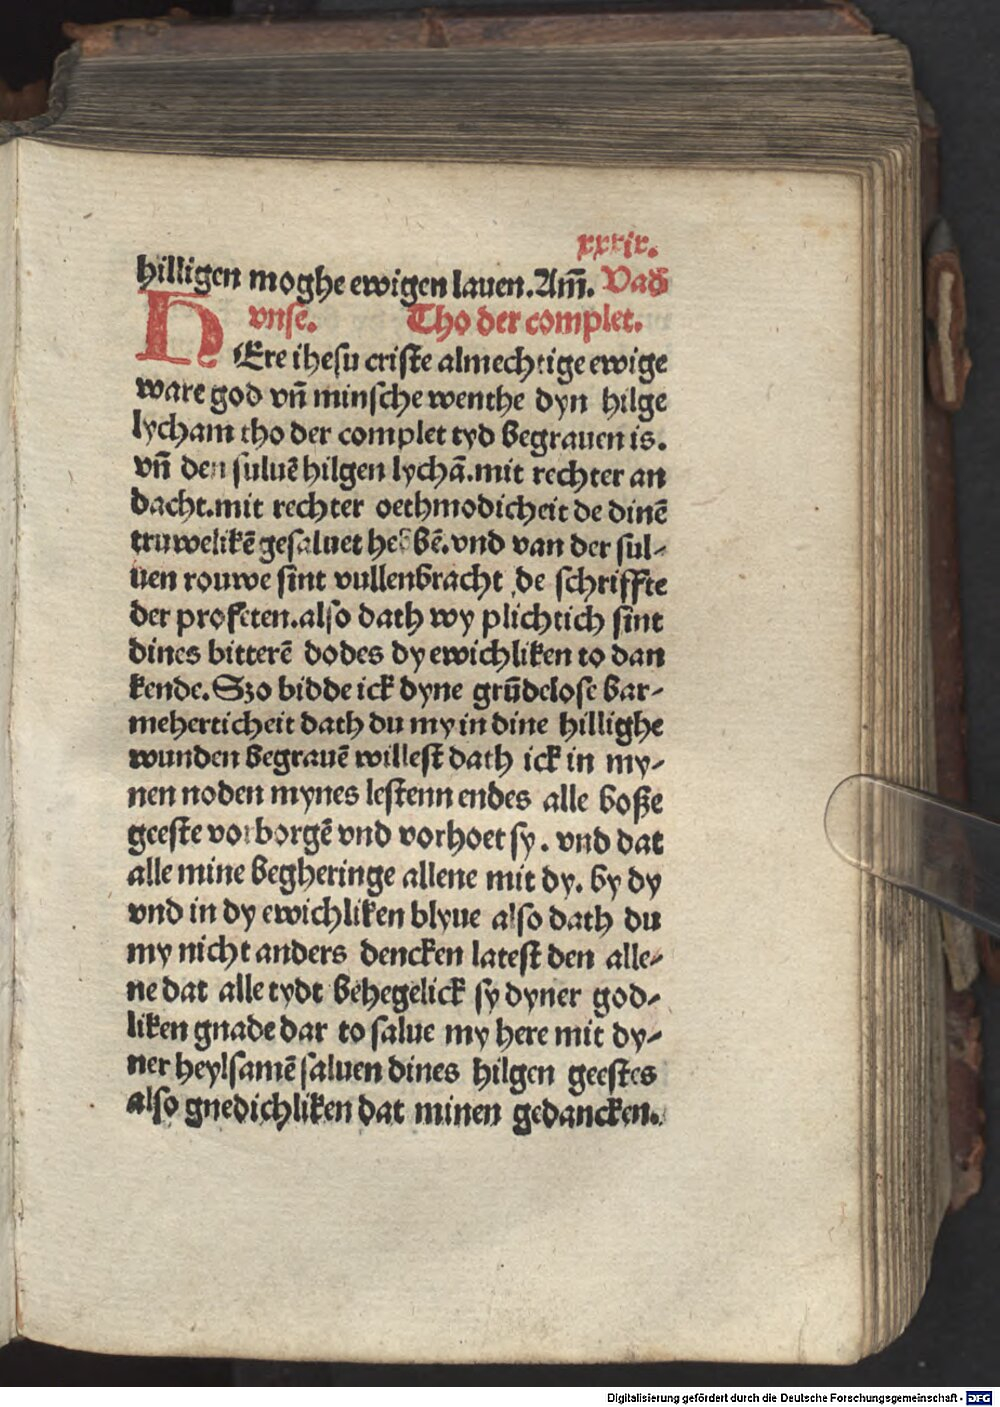 xxxix.
hilligen moghe ewigen lauen. Am̄. Vad̄
vnse. Tho der complet.
HEre ihesu criste almechtige ewige
ware god vn̄ minsche wenthe dyn hilge
lycham tho der complet tyd begrauen is.
vn̄ den suluē hilgen lychā. mit rechter an
dacht. mit rechter oethmodicheit de dinē
truwelikē gesaluet hebbē. vnd van der sul-
uen rouwe sint vullenbracht de schriffte
der profeten. also dath wy plichtich sint
dines bitterē dodes dy ewichliken to dan
kende. Szo bidde ick dyne grūdelose bar-
meherticheit dath du my in dine hillighe
wunden begrauē willest dath ick in my-
nen noden mynes lestenn endes alle boße
geeste vorborgē vnd vorhoet sy. vnd dat
alle mine begheringe allene mit dy. by dy
vnd in dy ewichliken blyue also dath du
my nicht anders dencken latest den alle-
ne dat alle tydt behegelick sy dyner god-
liken gnade dar to salue my here mit dy-
ner heylsamē saluen dines hilgen geestes
also gnedichliken dat minen gedancken.
Digitalisierung gefördert durch die Deutsche Forschungsgemeinschaft - DFG